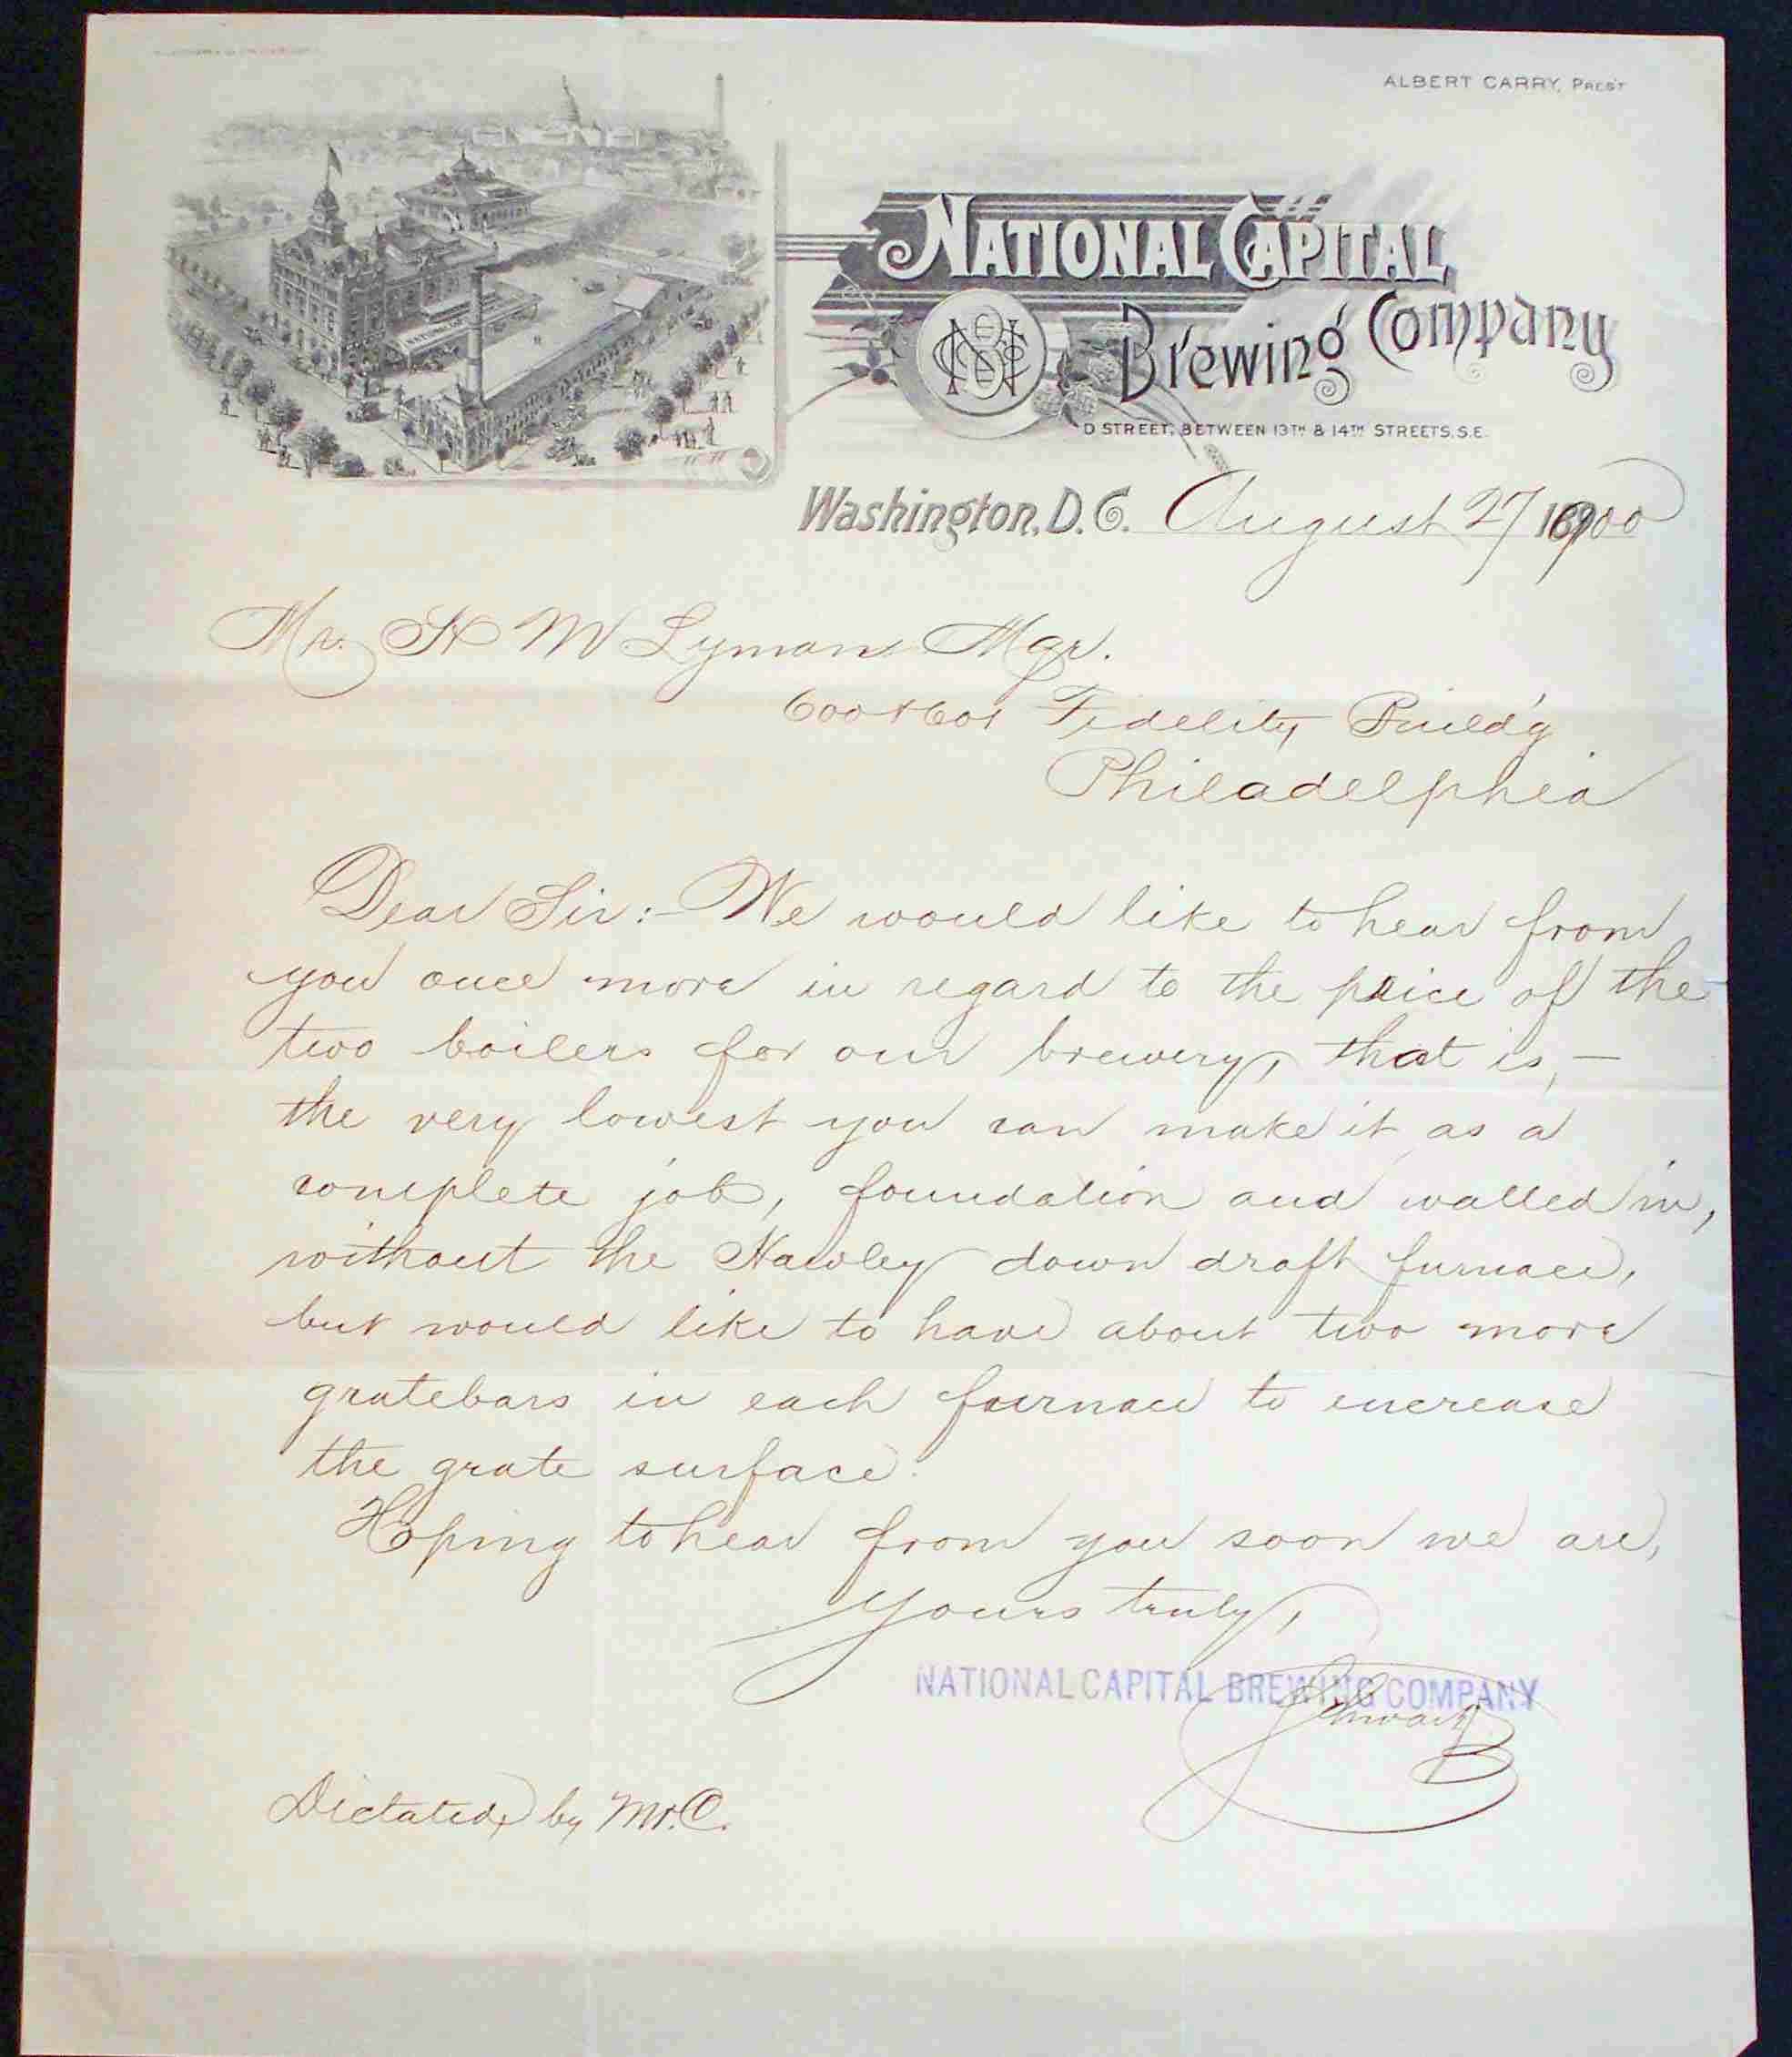 ALBERT CARRY, PREST
NATIONAL CAPITAL
Brewing Company
D STREET, BETWEEN 13TH & 14TH STREETS, S.E.
Washington, D.C. August 27 1900
Mr. H M Lyman Mgr.
600 & 601 Fidelity Build'g
Philadelphia
Dear Sir:- We would like to hear from
you once more in regard to the price of the
two boilers for our brewery, that is, —
the very lowest you can make it as a
complete job, foundation and walled in,
without the Hawley down draft furnace,
but would like to have about two more
gratebars in each fournace to encrease
the grate surface.
Hoping to hear from you soon we are,
Yours truly,
NATIONAL CAPITAL BREWING COMPANY
Schwarz
Dictated by Mr. C.